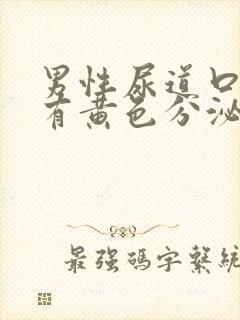 男性尿道口
有黄色分泌
最强碼字繫統